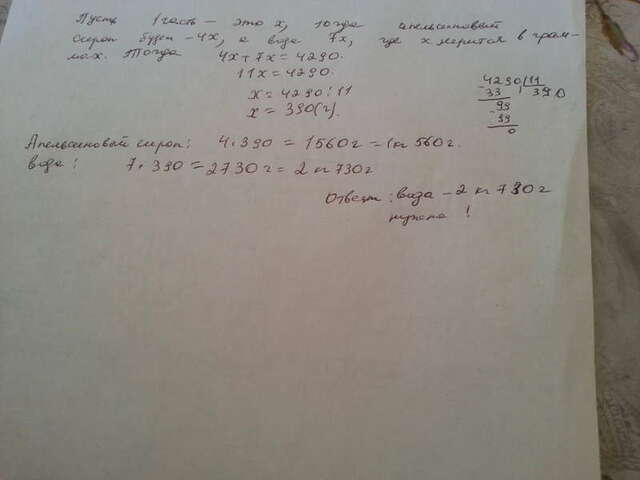 Пусть 1 часть – это x, тогда апельсиновый
сироп будет – 4x, а вода 7x, где x мерится в грам-
мах. Тогда 4x+7x=4290.
11x=4290.
x=4290:11
x=390(г).
4290|11
-33 390
99
-99
0
Апельсиновый сироп: 4·390=1560г=1кг 560г.
вода: 7·390=2730г=2кг730г
Ответ: вода – 2 кг 730 г
нужна!